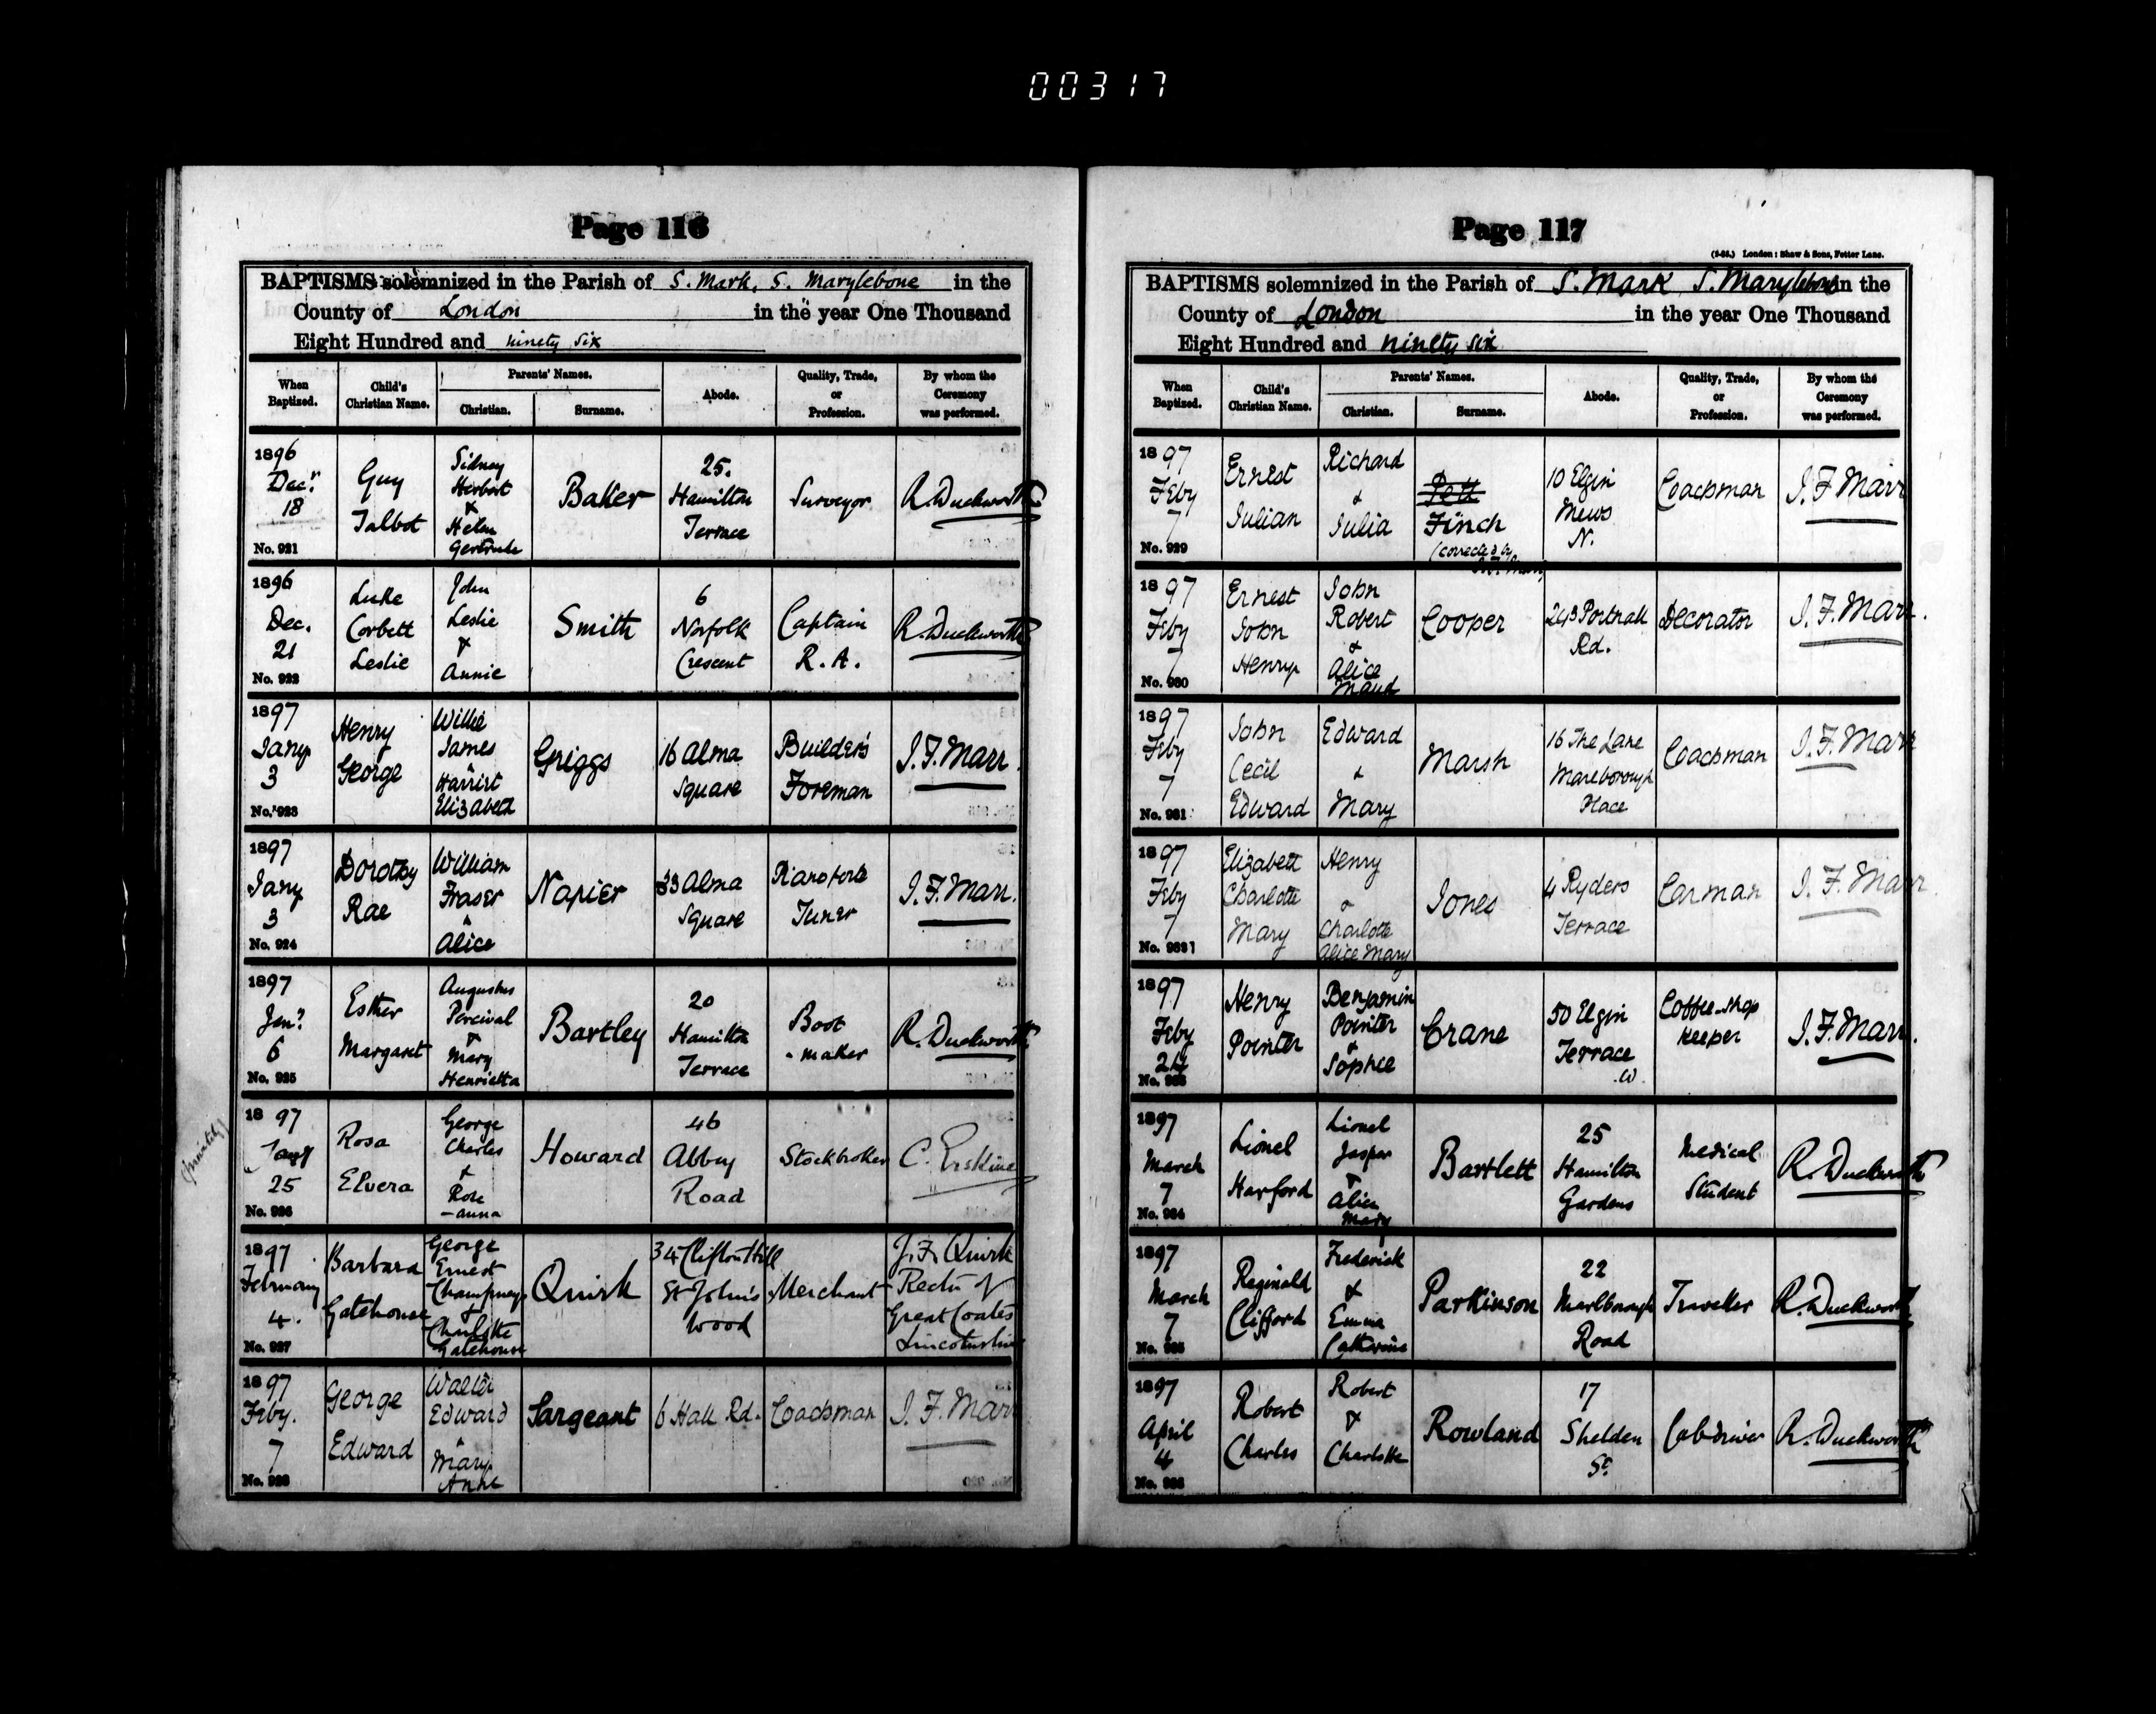 00317
Page 116
BAPTISMS solemnized in the Parish of S. Mark, S. Marylebone in the
County of London in the year One Thousand
Eight Hundred and ninety six
When Baptized.
Child's Christian Name.
Parents' Names.
Christian.
Surname.
Abode.
Quality, Trade, or Profession.
By whom the Ceremony was performed.
1896
Decr.
18
No. 921
Guy
Talbot
Sidney
Herbert
&
Helen
Gertrude
Baker
25.
Hamilton
Terrace
Surveyor
R. Duckworth
1896
Dec.
21
No. 922
Luke
Corbett
Leslie
John
Leslie
&
Annie
Smith
6
Norfolk
Crescent
Captain
R. A.
R. Duckworth
1897
Jany
3
No. 923
Henry
George
Willie
James
&
Harriet
Elizabeth
Griggs
16 Alma
Square
Builder's
Foreman
J. F. Marr.
1897
Jany
3
No. 924
Dorothy
Rae
William
Fraser
&
Alice
Napier
33 Alma
Square
Pianoforte
Tuner
J. F. Marr.
1897
Jany
6
No. 925
Esther
Margaret
Augustus
Percival
&
Mary
Henrietta
Bartley
20
Hamilton
Terrace
Boot
-maker
R. Duckworth
(privately)
1897
Jany
25
No. 926
Rosa
Elvera
George
Charles
&
Rose
-anna
Howard
46
Abbey
Road
Stockbroker
C. Erskine
1897
February
4.
No. 927
Barbara
Gatehouse
George
Ernest
Champneys
&
Charlotte
Gatehouse
Quirk
34 Clifton Hill
St John's
Wood
Merchant
J. F. Quirk
Rector of
Great Coates
Lincolnshire
1897
Feby.
7
No. 928
George
Edward
Walter
Edward
&
Mary
Anne
Sargeant
6 Hall Rd.
Coachman
J. F. Marr
Page 117
(5-83.) London: Shaw & Sons, Fetter Lane.
BAPTISMS solemnized in the Parish of S. Mark S. Marylebone in the
County of London in the year One Thousand
Eight Hundred and ninety six
When Baptized.
Child's Christian Name.
Parents' Names.
Christian.
Surname.
Abode.
Quality, Trade, or Profession.
By whom the Ceremony was performed.
1897
Feby
7
No. 929
Ernest
Julian
Richard
&
Julia
Finch
(corrected by
J.F. Marr)
10 Elgin
Mews
N.
Coachman
J. F. Marr
1897
Feby
7
No. 930
Ernest
John
Henry
John
Robert
&
Alice
Maud
Cooper
243 Portnall
Rd.
Decorator
J. F. Marr.
1897
Feby
7
No. 931
John
Cecil
Edward
Edward
&
Mary
Marsh
16 The Lane
Marlborough
Place
Coachman
J. F. Marr
1897
Feby
7
No. 932
Elizabeth
Charlotte
Mary
Henry
&
Charlotte
Alice Mary
Jones
4 Ryders
Terrace
Carman
J. F. Marr.
1897
Feby
24
No. 933
Henry
Pointer
Benjamin
Pointer
&
Sophie
Crane
50 Elgin
Terrace
.W.
Coffee-shop
keeper
J. F. Marr.
1897
March
7
No. 934
Lionel
Harford
Lionel
Jasper
&
Alice
Mary
Bartlett
25
Hamilton
Gardens
Medical
Student
R. Duckworth
1897
March
7
No. 935
Reginald
Clifford
Frederick
&
Emma
Catherine
Parkinson
22
Marlborough
Road
Traveller
R. Duckworth
1897
April
4
No. 936
Robert
Charles
Robert
&
Charlotte
Rowland
17
Shelden
St.
Cabdriver
R. Duckworth